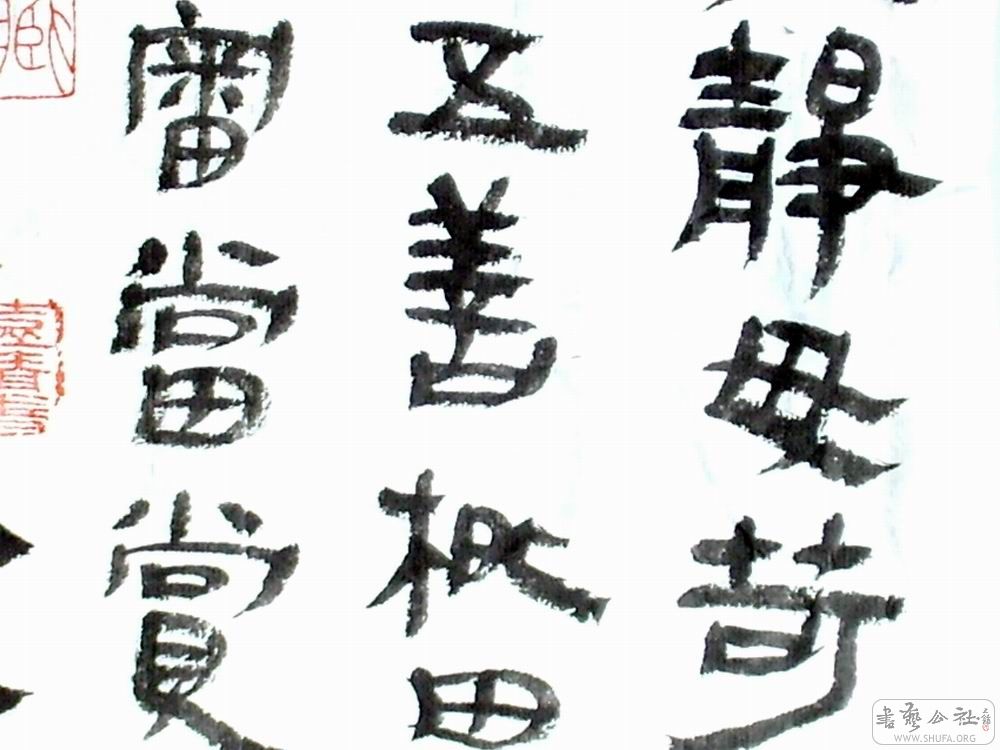 靜毋苛
五善根田
審當賞
書藝公社
WWW.SHUFA.ORG